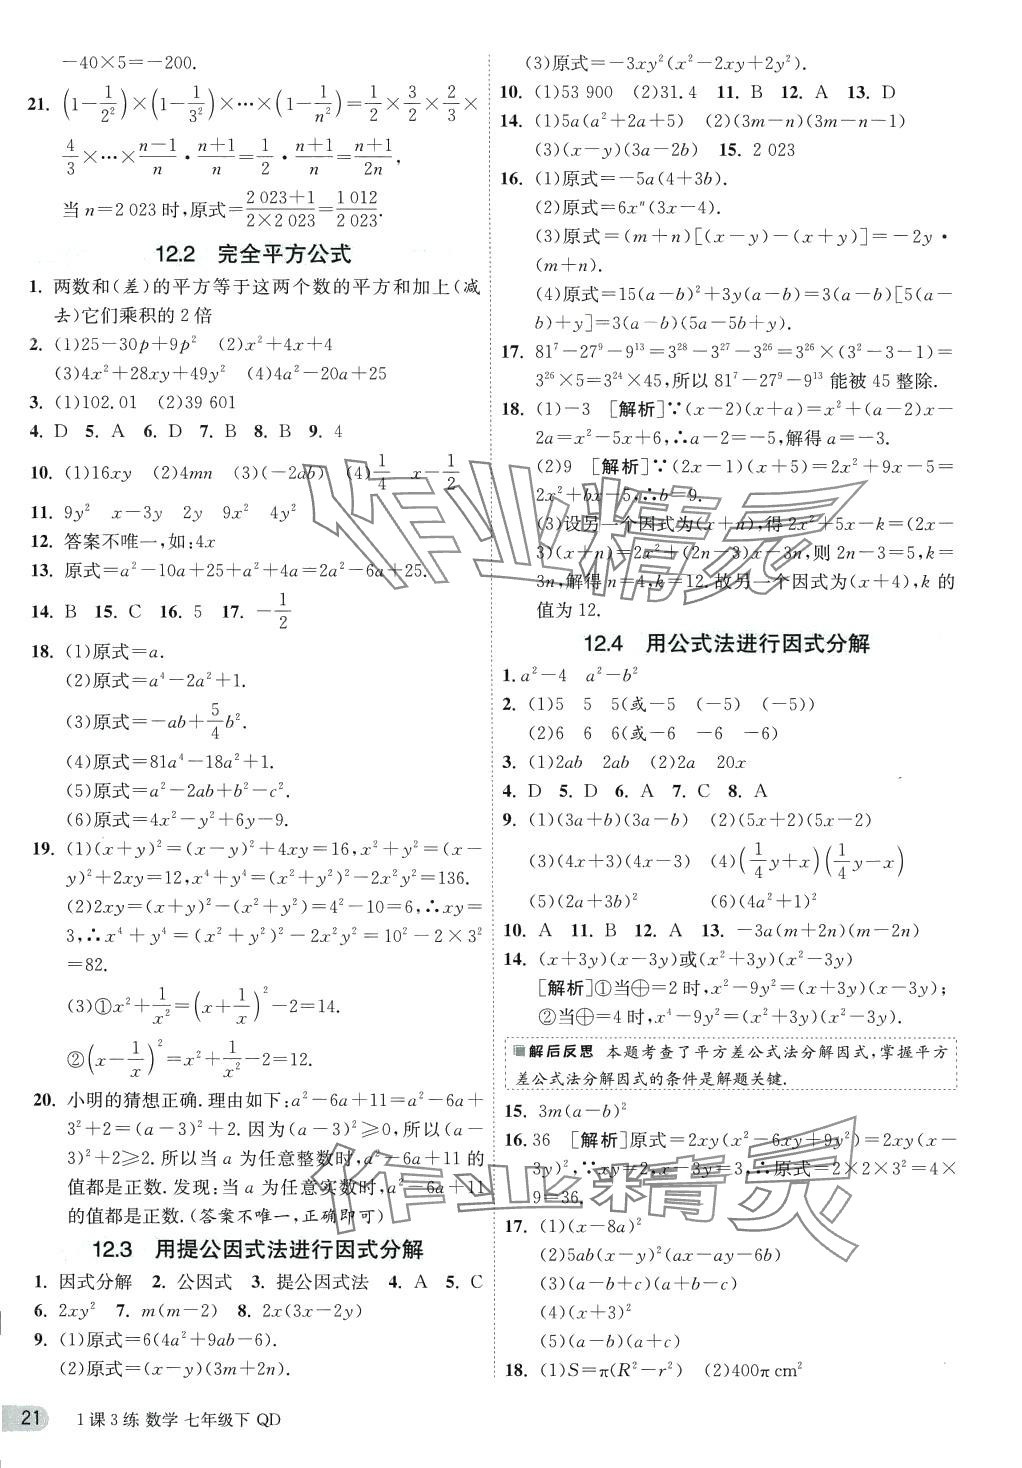 -40×5=-200.
21. (1-1/2²)×(1-1/3²)×…×(1-1/n²)=1/2×3/2×2/3×
4/3×…×(n-1)/n·(n+1)/n=1/2·(n+1)/n=(n+1)/2n,
当n=2 023时,原式=(2 023+1)/(2×2 023)=1 012/2 023.
12.2 完全平方公式
1. 两数和(差)的平方等于这两个数的平方和加上(减
去)它们乘积的2倍
2. (1)25-30p+9p² (2)x²+4x+4
(3)4x²+28xy+49y² (4)4a²-20a+25
3. (1)102.01 (2)39 601
4. D 5. A 6. D 7. B 8. B 9. 4
10. (1)16xy (2)4mn (3)(-2ab) (4)1/4 x-1/2
11. 9y² x-3y 2y 9x² 4y²
12. 答案不唯一,如:4x
13. 原式=a²-10a+25+a²+4a=2a²-6a+25.
14. B 15. C 16. 5 17. -1/2
18. (1)原式=a.
(2)原式=a⁴-2a²+1.
(3)原式=-ab+5/4b².
(4)原式=81a⁴-18a²+1.
(5)原式=a²-2ab+b²-c².
(6)原式=4x²-y²+6y-9.
19. (1)(x+y)²=(x-y)²+4xy=16,x²+y²=(x-
y)²+2xy=12,x⁴+y⁴=(x²+y²)²-2x²y²=136.
(2)2xy=(x+y)²-(x²+y²)=4²-10=6,∴xy=
3,∴x⁴+y⁴=(x²+y²)²-2x²y²=10²-2×3²
=82.
(3)①x²+1/x²=(x+1/x)²-2=14.
②(x-1/x)²=x²+1/x²-2=12.
20. 小明的猜想正确.理由如下:a²-6a+11=a²-6a+
3²+2=(a-3)²+2.因为(a-3)²≥0,所以(a-
3)²+2≥2.所以当a为任意整数时,a²-6a+11的
值都是正数.发现:当a为任意实数时,a²-6a+11
的值都是正数.(答案不唯一,正确即可)
12.3 用提公因式法进行因式分解
1. 因式分解 2. 公因式 3. 提公因式法 4. A 5. C
6. 2xy² 7. m(m-2) 8. 2x(3x-2y)
9. (1)原式=6(4a²+9ab-6).
(2)原式=(x-y)(3m+2n).
21 1课3练 数学 七年级下 QD
(3)原式=-3xy²(x²-2xy+2y²).
10. (1)53 900 (2)31.4 11. B 12. A 13. D
14. (1)5a(a²+2a+5) (2)(3m-n)(3m-n-1)
(3)(x-y)(3a-2b) 15. 2 023
16. (1)原式=-5a(4+3b).
(2)原式=6xⁿ(3x-4).
(3)原式=(m+n)[(x-y)-(x+y)]=-2y·
(m+n).
(4)原式=15(a-b)²+3y(a-b)=3(a-b)[5(a-
b)+y]=3(a-b)(5a-5b+y).
17. 81⁷-27⁹-9¹³=3²⁸-3²⁷-3²⁶=3²⁶×(3²-3-1)=
3²⁶×5=3²⁴×45,所以81⁷-27⁹-9¹³能被45整除.
18. (1)-3 [解析]∵(x-2)(x+a)=x²+(a-2)x-
2a=x²-5x+6,∴a-2=-5,解得a=-3.
(2)9 [解析]∵(2x-1)(x+5)=2x²+9x-5=
2x²+bx-5,∴b=9.
(3)设另一个因式为(x+n),得2x²+5x-k=(2x-
3)(x+n)=2x²+(2n-3)x-3n,则2n-3=5,k=
3n,解得n=4,k=12.故另一个因式为(x+4),k的
值为12.
12.4 用公式法进行因式分解
1. a²-4 a²-b²
2. (1)5 5 5(或-5 (-5) (-5))
(2)6 6 6(或-6 -6 -6)
3. (1)2ab 2ab (2)2a 20x
4. D 5. D 6. A 7. C 8. A
9. (1)(3a+b)(3a-b) (2)(5x+2)(5x-2)
(3)(4x+3)(4x-3) (4)(1/4y+x)(1/4y-x)
(5)(2a+3b)² (6)(4a²+1)²
10. A 11. B 12. A 13. -3a(m+2n)(m-2n)
14. (x+3y)(x-3y)或(x²+3y)(x²-3y)
[解析]①当⊕=2时,x²-9y²=(x+3y)(x-3y);
②当⊕=4时,x⁴-9y²=(x²+3y)(x²-3y).
解后反思 本题考查了平方差公式法分解因式,掌握平方
差公式法分解因式的条件是解题关键.
15. 3m(a-b)²
16. 36 [解析]原式=2xy(x²-6xy+9y²)=2xy(x-
3y)²,∵xy=2,x-3y=3,∴原式=2×2×3²=4×
9=36.
17. (1)(x-8a)²
(2)5ab(x-y)²(ax-ay-6b)
(3)(a-b)(a+b-c)
(4)(x+3)²
(5)(a-b)(a+c)
18. (1)S=π(R²-r²) (2)400π cm²
作业精灵
作业精灵